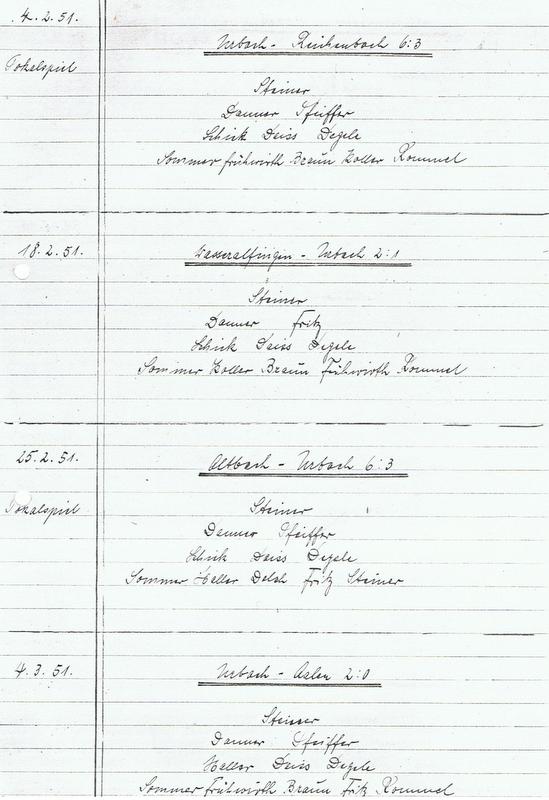 4.2.51.
Urbach - Reichenbach 6:3
Pokalspiel
Steiner
Danner Pfeiffer
Schick Deiss Degele
Sommer Frühwirth Braun Koller Rommel
18.2.51.
Wasseralfingen - Urbach 2:1
Steiner
Danner Fritz
Schick Deiss Degele
Sommer Koller Braun Frühwirth Rommel
25.2.51.
Altbach - Urbach 6:3
Pokalspiel
Steiner
Danner Pfeiffer
Schick Deiss Degele
Sommer Heller Fritz Steiner
4.3.51.
Urbach - Aalen 2:0
Steiner
Danner Pfeiffer
Heller Deiss Degele
Sommer Frühwirth Braun Fritz Rommel